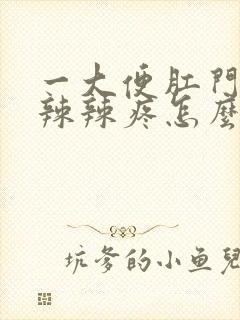 一大便肛門
辣辣疼怎麼
坑爹的小鱼兒